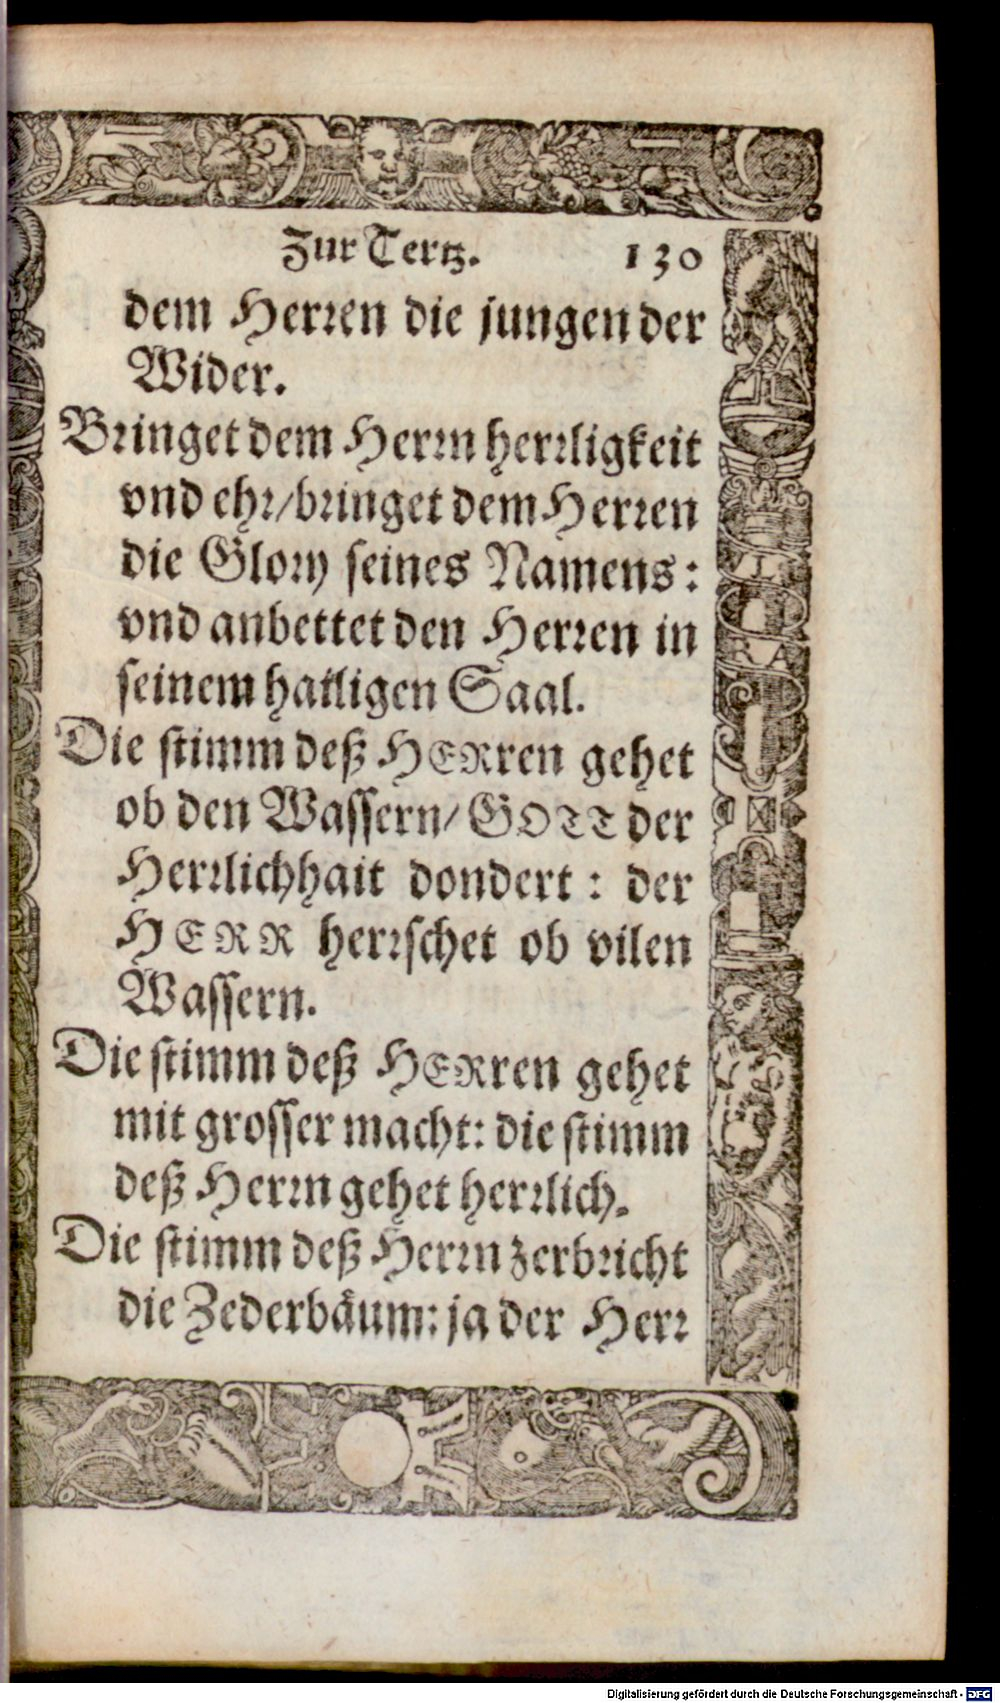 Zur Tertz. 130
dem Herren die jungen der
Wider.
Bringet dem Herrn herrligkeit
vnd ehr/bringet dem Herren
die Glory seines Namens:
vnd anbettet den Herren in
seinem hailigen Saal.
Die stimm deß HERren gehet
ob den Wassern/ GOTT der
Herrlichhait dondert: der
HERR herrschet ob vilen
Wassern.
Die stimm deß HERren gehet
mit grosser macht: die stimm
deß Herrn gehet herrlich.
Die stimm deß Herrn zerbricht
die Zederbäum: ja der Herr
Digitalisierung gefördert durch die Deutsche Forschungsgemeinschaft - DFG